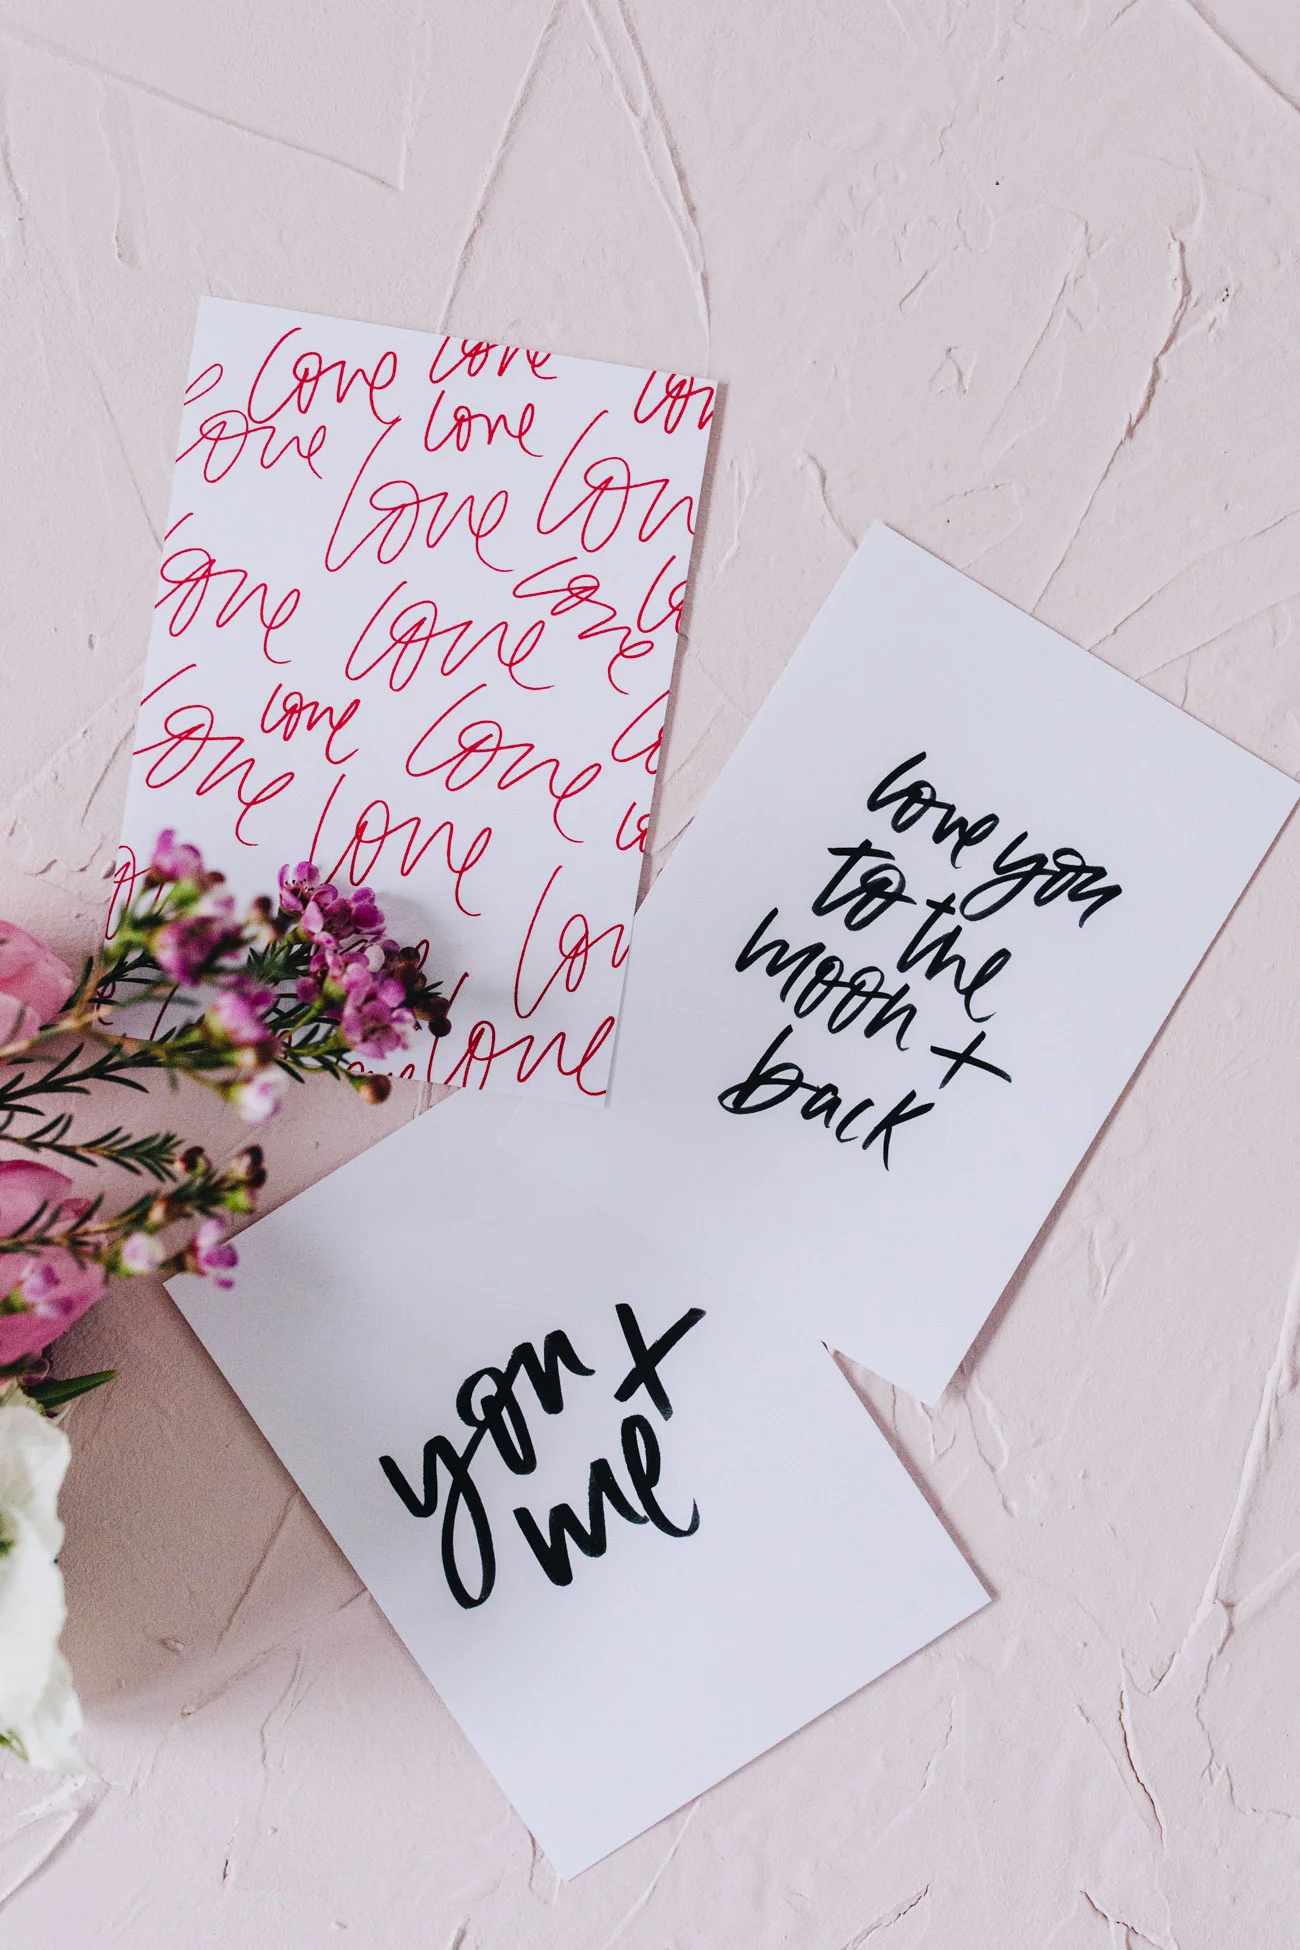 love love
love love
love
love
love love
love
love love
love
love
love
love you
to the
moon +
back
you +
me